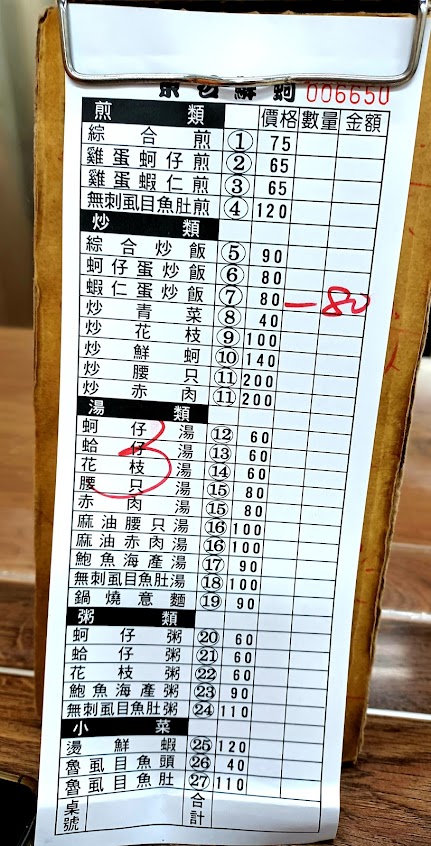 蚵 006650
煎類 價格 數量 金額
綜合煎 ① 75
雞蛋蚵仔煎 ② 65
雞蛋蝦仁煎 ③ 65
無刺虱目魚肚煎 ④ 120
炒類
綜合炒飯 ⑤ 90
蚵仔蛋炒飯 ⑥ 80
蝦仁蛋炒飯 ⑦ 80 一 80
炒青菜 ⑧ 40
炒花枝 ⑨ 100
炒鮮蚵 ⑩ 140
炒腰只 ⑪ 200
炒赤肉 ⑪ 200
湯類
蚵仔湯 ⑫ 60
蛤仔湯 ⑬ 60
花枝湯 ⑭ 60
3
腰只湯 ⑮ 80
赤肉湯 ⑮ 80
麻油腰只湯 ⑯ 100
麻油赤肉湯 ⑯ 100
鮑魚海產湯 ⑰ 90
無刺虱目魚肚湯 ⑱ 100
鍋燒意麵 ⑲ 90
粥類
蚵仔粥 ⑳ 60
蛤仔粥 ㉑ 60
花枝粥 ㉒ 60
鮑魚海產粥 ㉓ 90
無刺虱目魚肚粥 ㉔ 110
小菜
燙鮮蝦 ㉕ 120
魯虱目魚頭 ㉖ 40
魯虱目魚肚 ㉗ 110
桌號 合計